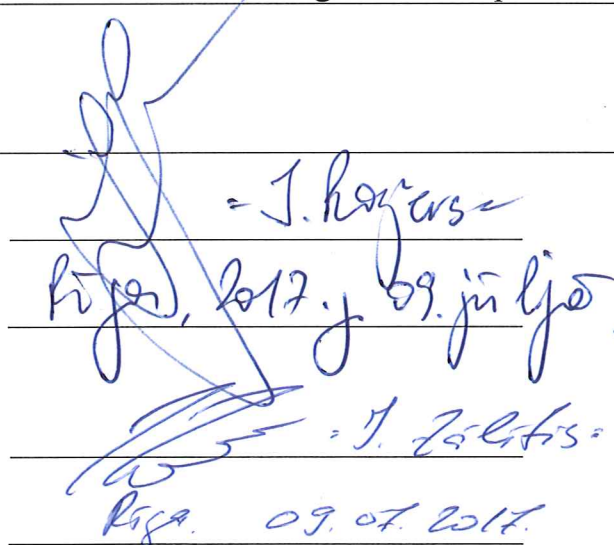 = J. Rozers =
Rīgā, 2017. g. 09. jūlijā
= J. Zālītis =
Rīga. 09.07.2017.